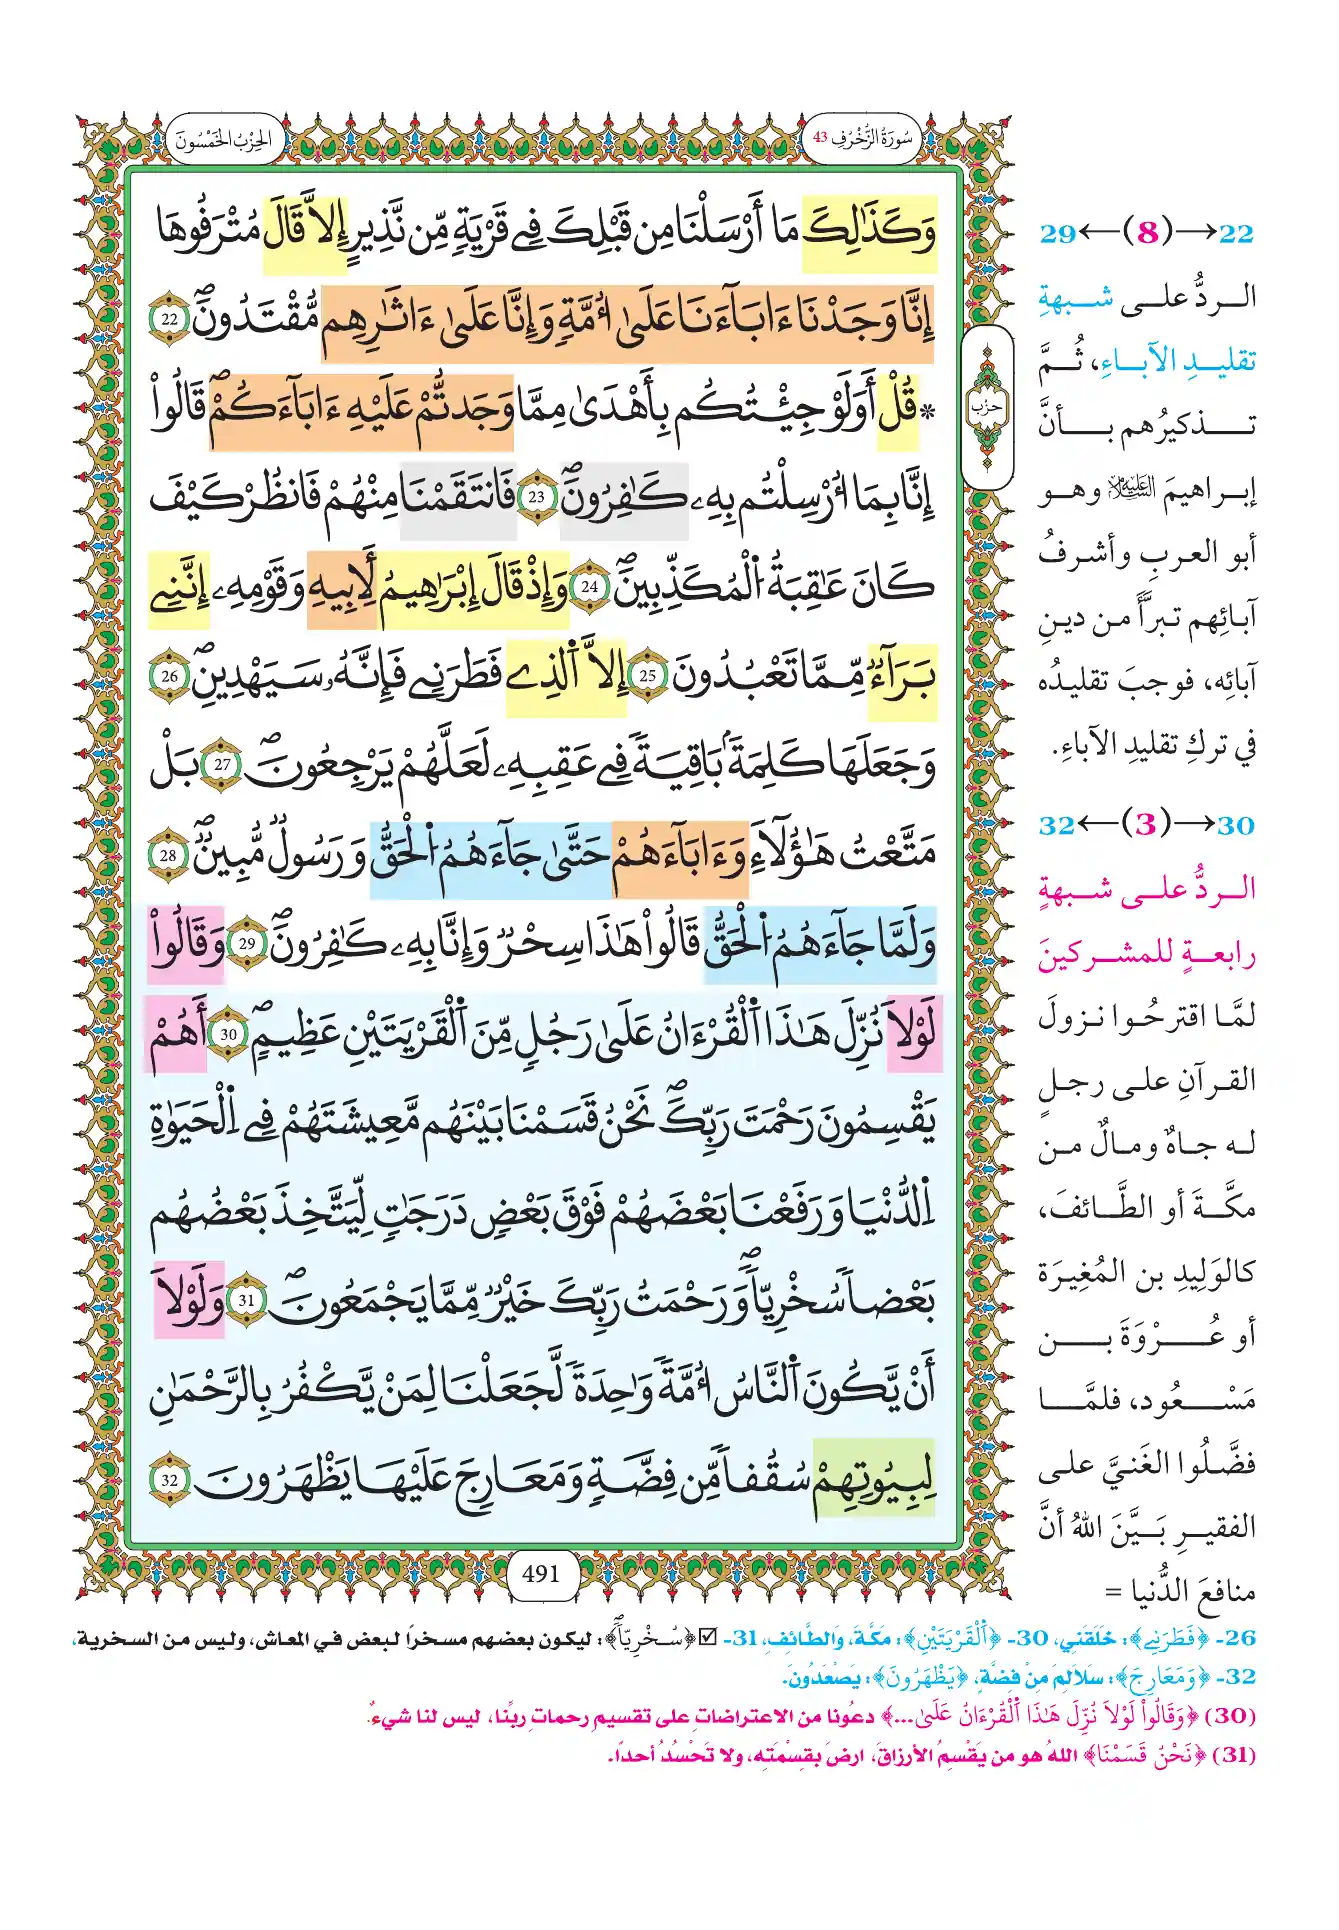 سُورَةُ الزُّخْرُفِ 43
الحِزْبُ الخَمْسُونَ
وَكَذَٰلِكَ مَا أَرْسَلْنَا مِن قَبْلِكَ فِے قَرْيَةٍ مِّن نَّذِيرٍ إِلَّا قَالَ مُتْرَفُوهَا
إِنَّا وَجَدْنَا ءَابَآءَنَا عَلَىٰ أُمَّةٍ وَإِنَّا عَلَىٰ ءَاثَٰرِهِم مُّقْتَدُونَ 22
* قُلْ أَوَلَوْ جِئْتُكُم بِأَهْدَىٰ مِمَّا وَجَدتُّمْ عَلَيْهِ ءَابَآءَكُمْ قَالُواْ
إِنَّا بِمَا أُرْسِلْتُم بِهِۦ كَٰفِرُونَ 23 فَانتَقَمْنَا مِنْهُمْ فَانظُرْ كَيْفَ
كَانَ عَٰقِبَةُ الْمُكَذِّبِينَ 24 وَإِذْ قَالَ إِبْرَٰهِيمُ لِأَبِيهِ وَقَوْمِهِۦ إِنَّنِے
بَرَآءٌ مِّمَّا تَعْبُدُونَ 25 إِلَّا الَّذِے فَطَرَنِے فَإِنَّهُۥ سَيَهْدِينِ 26
وَجَعَلَهَا كَلِمَةً بَاقِيَةً فِے عَقِبِهِۦ لَعَلَّهُمْ يَرْجِعُونَ 27 بَلْ
مَتَّعْتُ هَٰؤُلَآءِ وَءَابَآءَهُمْ حَتَّىٰ جَآءَهُمُ الْحَقُّ وَرَسُولٌ مُّبِينٌ 28
وَلَمَّا جَآءَهُمُ الْحَقُّ قَالُواْ هَٰذَا سِحْرٌ وَإِنَّا بِهِۦ كَٰفِرُونَ 29 وَقَالُواْ
لَوْلَا نُزِّلَ هَٰذَا الْقُرْءَانُ عَلَىٰ رَجُلٍ مِّنَ الْقَرْيَتَيْنِ عَظِيمٍ 30 أَهُمْ
يَقْسِمُونَ رَحْمَتَ رَبِّكَ نَحْنُ قَسَمْنَا بَيْنَهُم مَّعِيشَتَهُمْ فِے الْحَيَوٰةِ
الدُّنْيَا وَرَفَعْنَا بَعْضَهُمْ فَوْقَ بَعْضٍ دَرَجَٰتٍ لِّيَتَّخِذَ بَعْضُهُم
بَعْضاً سُخْرِيّاً وَرَحْمَتُ رَبِّكَ خَيْرٌ مِّمَّا يَجْمَعُونَ 31 وَلَوْلَا
أَنْ يَّكُونَ النَّاسُ أُمَّةً وَٰحِدَةً لَّجَعَلْنَا لِمَنْ يَّكْفُرُ بِالرَّحْمَٰنِ
لِبُيُوتِهِمْ سُقُفاً مِّن فِضَّةٍ وَمَعَارِجَ عَلَيْهَا يَظْهَرُونَ 32
491
حزب
22→(8)←29
الردُّ على شبهةِ
تقليدِ الآباءِ، ثُمَّ
تذكيرُهم بأنَّ
إبراهيمَ عليه السلام وهو
أبو العربِ وأشرفُ
آبائِهم تبرَّأَ من دينِ
آبائِه، فوجبَ تقليدُه
في تركِ تقليدِ الآباءِ.
30→(3)←32
الردُّ على شبهةٍ
رابعةٍ للمشركينَ
لمَّا اقترحُوا نزولَ
القرآنِ على رجلٍ
له جاهٌ ومالٌ من
مكَّةَ أو الطَّائفَ،
كالوَلِيدِ بن المُغِيرَة
أو عُرْوَةَ بن
مَسْعُود، فلمَّا
فضَّلُوا الغَنيَّ على
الفقيرِ بَيَّنَ اللهُ أنَّ
منافعَ الدُّنيا =
26- ﴿فَطَرَنِے﴾: خَلَقَنِي، 30- ﴿الْقَرْيَتَيْنِ﴾: مَكَّةَ، وَالطَّائِفِ، 31- ☑ ﴿سُخْرِيّاً﴾: ليكون بعضهم مسخراً لبعض في المعاش، وليس من السخرية،
32- ﴿وَمَعَارِجَ﴾: سَلَالِمَ مِنْ فِضَّةٍ، ﴿يَظْهَرُونَ﴾: يَصْعَدُونَ.
(30) ﴿وَقَالُواْ لَوْلَا نُزِّلَ هَٰذَا الْقُرْءَانُ عَلَىٰ...﴾ دعُونا من الاعتراضاتِ على تقسيمِ رحماتِ ربِّنا، ليس لنا شيءٌ.
(31) ﴿نَحْنُ قَسَمْنَا﴾ اللهُ هو من يَقْسِمُ الأرزاقَ، ارضَ بقِسْمَتِه، ولا تَحْسُدْ أحداً.